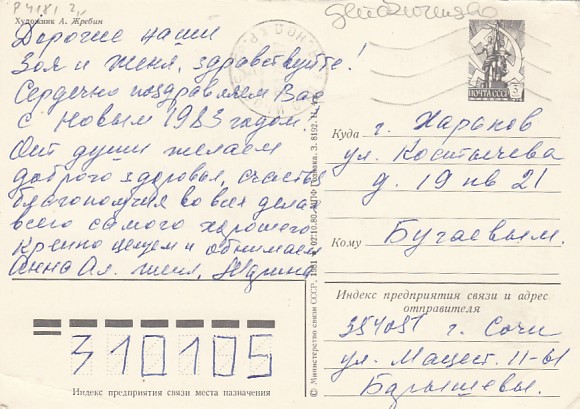 Художник А. Жребин
Дорогие наши
Зоя и Женя, здравствуйте!
Сердечно поздравляем Вас
с Новым 1983 годом.
От души желаем
доброго здоровья, счастья
благополучия во всех делах
всего самого хорошего.
Крепко целуем и обнимаем
Анна Ал.
ПОЧТА СССР
Куда г. Харьков
ул. Костычева
д. 19 кв 21
Кому Бугаевым.
Индекс предприятия связи и адрес
отправителя
354051 г. Сочи
ул. Мацест. 11-61
Барышевы.
310105
Индекс предприятия связи места назначения
© Министерство связи СССР, 1981